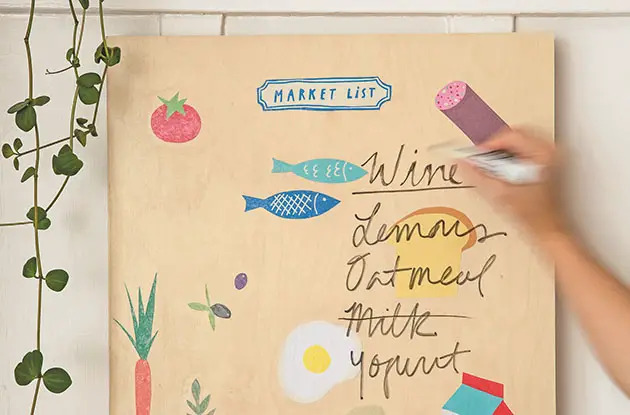 MARKET LIST
Wine
Lemons
Oatmeal
Milk
Yogurt